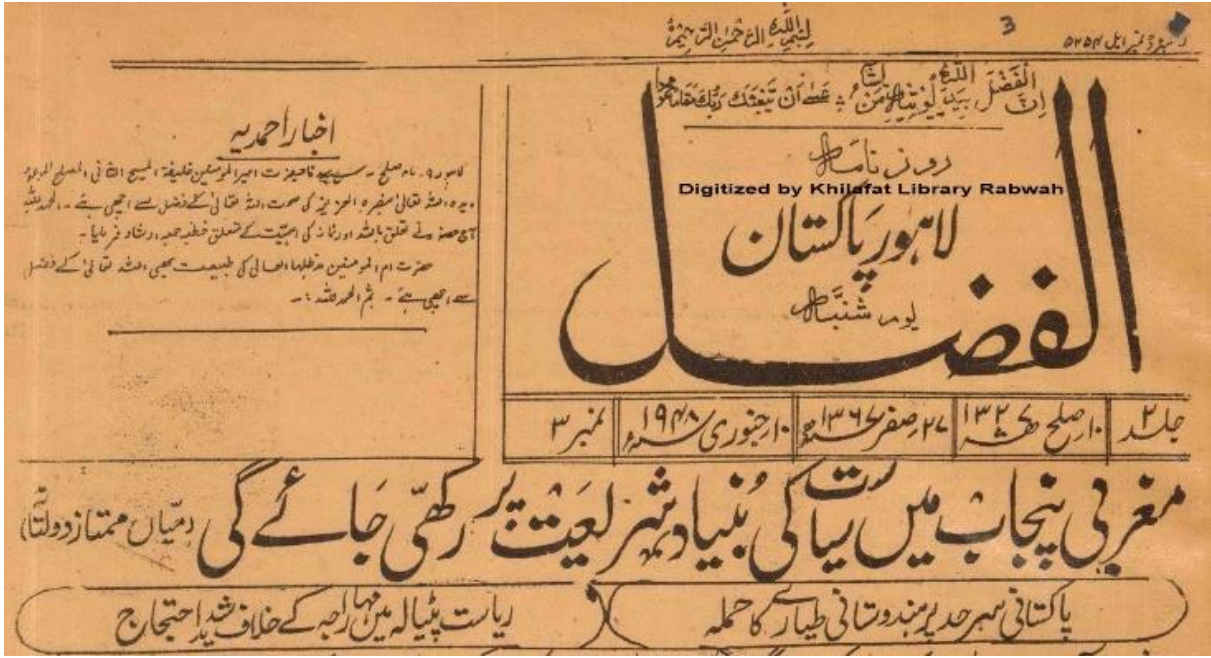 بِسْمِ اللّٰهِ الرَّحْمٰنِ الرَّحِيْمِ
3
رجسٹرڈ نمبر ایل ۵۲۵۴
اِنَّ الْفَضْلَ بِيَدِ اللّٰهِ يُؤْتِيْهِ مَنْ يَّشَآءُ عَسٰى اَنْ يَّبْعَثَكَ رَبُّكَ مَقَامًا مَّحْمُوْدًا
روزنامہ
Digitized by Khilafat Library Rabwah
لاہور پاکستان
الفضل
یوم شنبہ
جلد ۲
۱۰ صلح ۱۳۲۷ھش
۲۷ صفر ۱۳۶۷ھ
۱۰ جنوری ۱۹۴۸ء
نمبر ۳
اخبار احمدیہ
لاہور ۹ ماہ صلح ۔ سیدنا حضرت امیر المومنین خلیفۃ المسیح الثانی المصلح الموعود
ایدہ اللہ تعالیٰ بنصرہ العزیز کی صحت اللہ تعالیٰ کے فضل سے اچھی ہے ۔ الحمد للہ
آج حضور نے تعلق باللہ اور نماز کی اہمیت کے متعلق خطبہ جمعہ ارشاد فرمایا ۔
حضرت ام المومنین مدظلہا العالی کی طبیعت بھی اللہ تعالیٰ کے فضل
سے اچھی ہے ۔ ثم الحمد للہ ۔
مغربی پنجاب میں ریاست کی بُنیاد شریعت پر رکھی جائے گی (میاں ممتاز دولتانہ)
پاکستانی سرحد پر ہندوستانی طیارے کا حملہ
ریاست پٹیالہ میں مہاراجہ کے خلاف شدید احتجاج